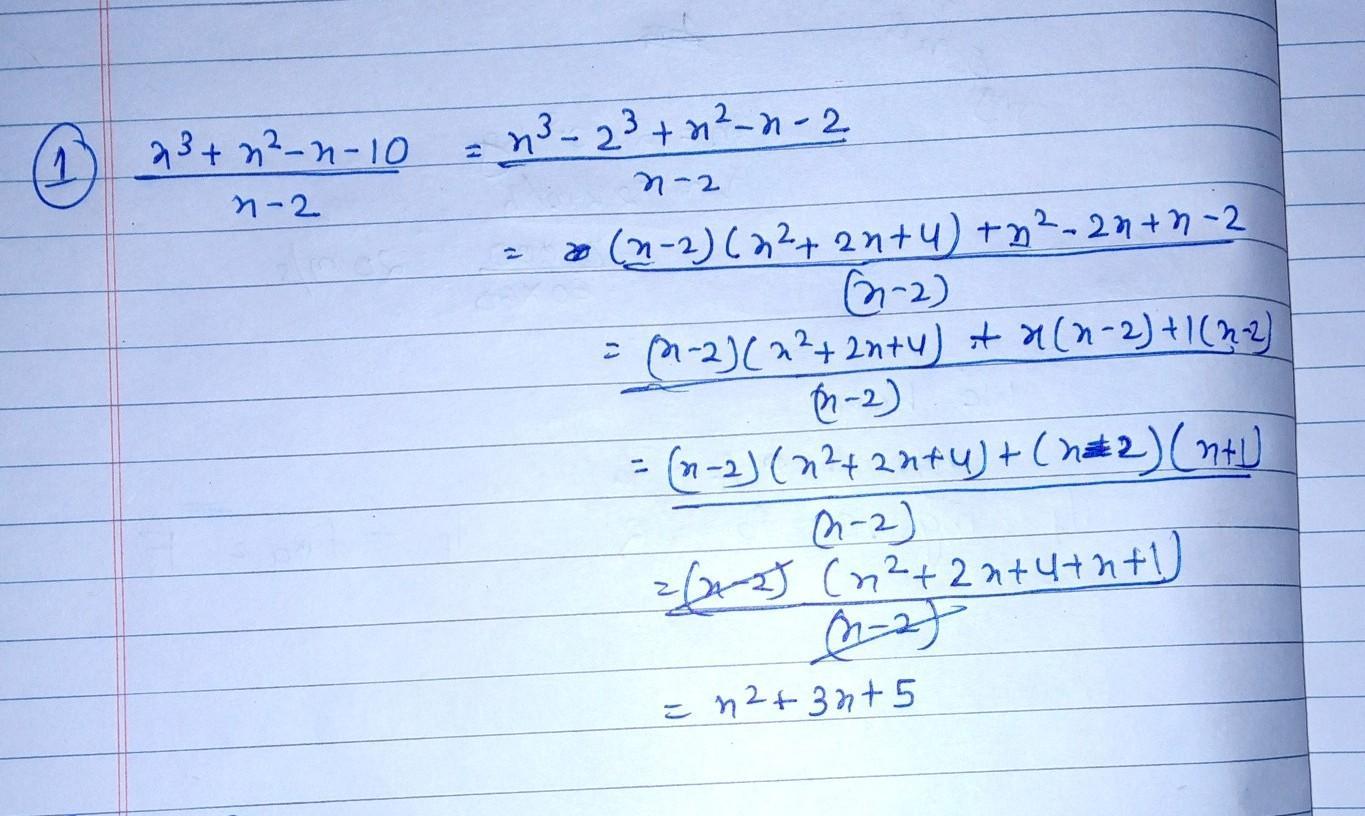 ① x³ + x² - x - 10 / x - 2 = x³ - 2³ + x² - x - 2 / x - 2
= (x-2)(x² + 2x+4) + x² - 2x + x - 2 / (x-2)
= (x-2)(x² + 2x+4) + x(x-2) + 1(x-2) / (x-2)
= (x-2)(x² + 2x+4) + (x-2)(x+1) / (x-2)
= (x-2) (x² + 2x+4+x+1) / (x-2)
= x² + 3x + 5